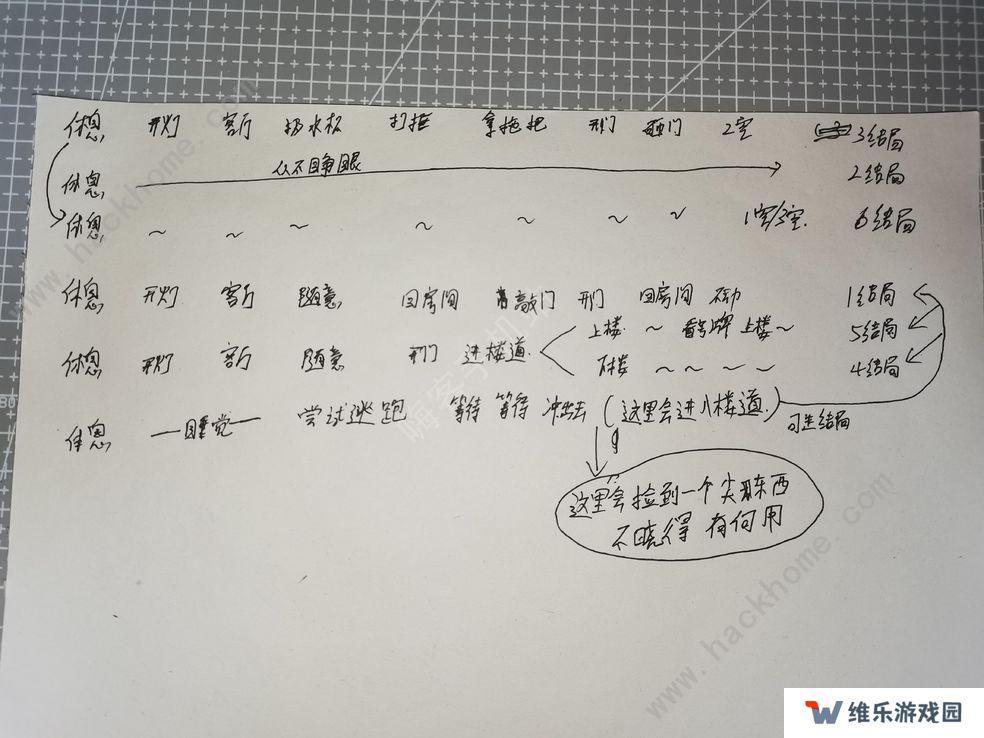 休息 开灯 客厅 扔水杯 打拒 拿拖把 开门 砸门 2空 3结局
从不睁眼
休息 2结局
休息 ~ ~ ~ ~ ~ ~ ~ 6结局
休息 开灯 客厅 随意 回房间 敲门 开门 回房间 1结局
上楼 ~ 看号牌 上楼~ 5结局
休息 开灯 客厅 随意 开门 进楼道
下楼 ~ ~ ~ ~ 4结局
休息 —睡觉— 尝试逃跑 等待 等待 冲出去 (这里会进入楼道) 可走结局
这里会捡到一个尖东西
不晓得 有何用
www.hackhome.com
嗨客手机站
www.hackhome.com
维乐游戏园